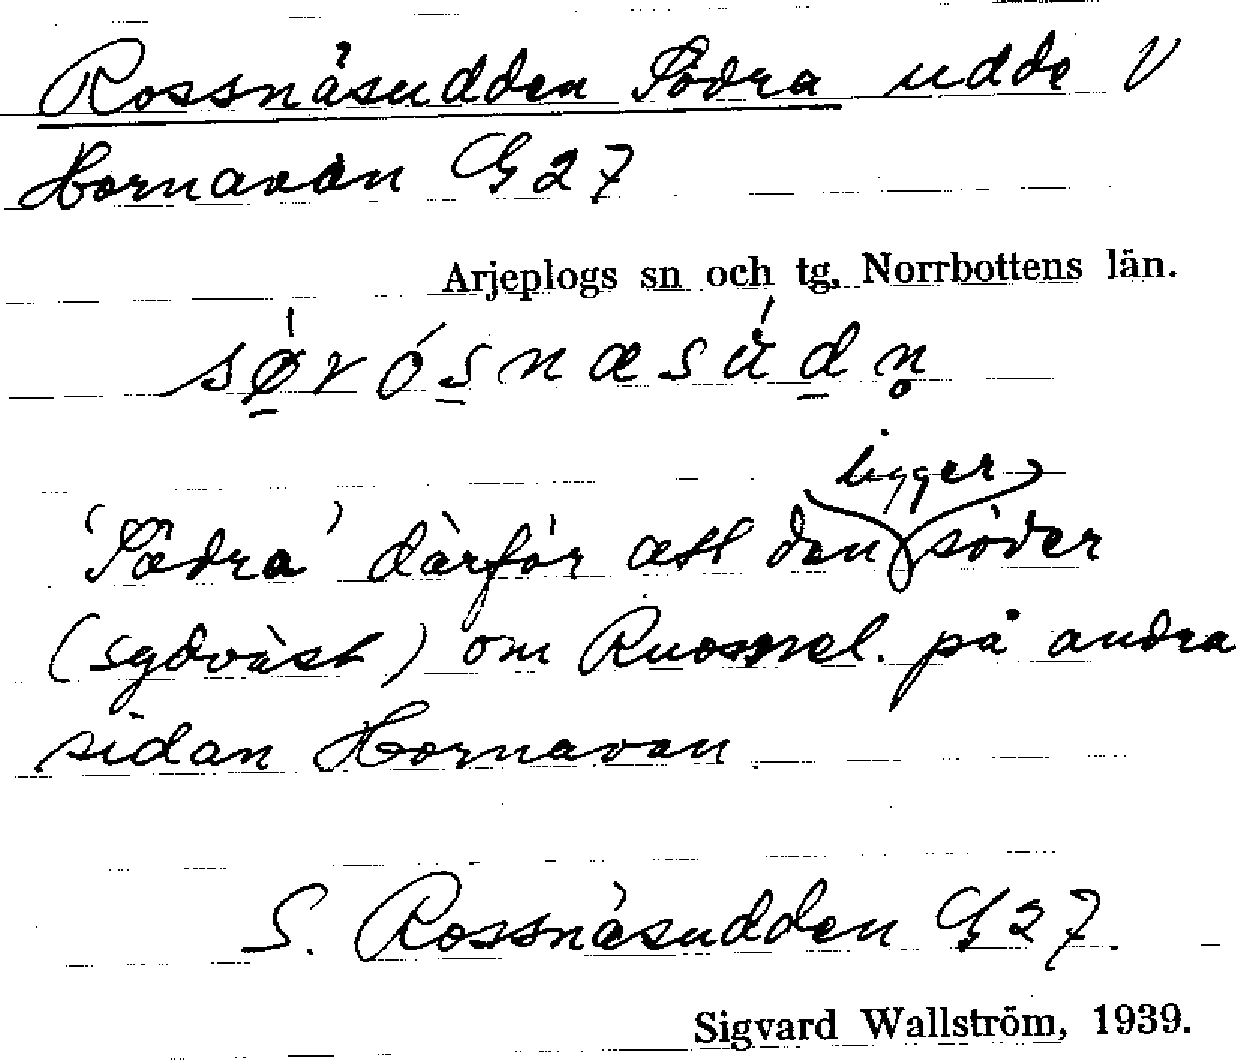 Rossnäsudden Södra udde V
Hornavan G27
Arjeplogs sn och tg, Norrbottens län.
sǿ̲rós̲næsúd̲n̥
'Södra' därför att den ligger söder
(sydväst) om på andra
sidan Hornavan
S. Rossnäsudden G27
Sigvard Wallström, 1939.